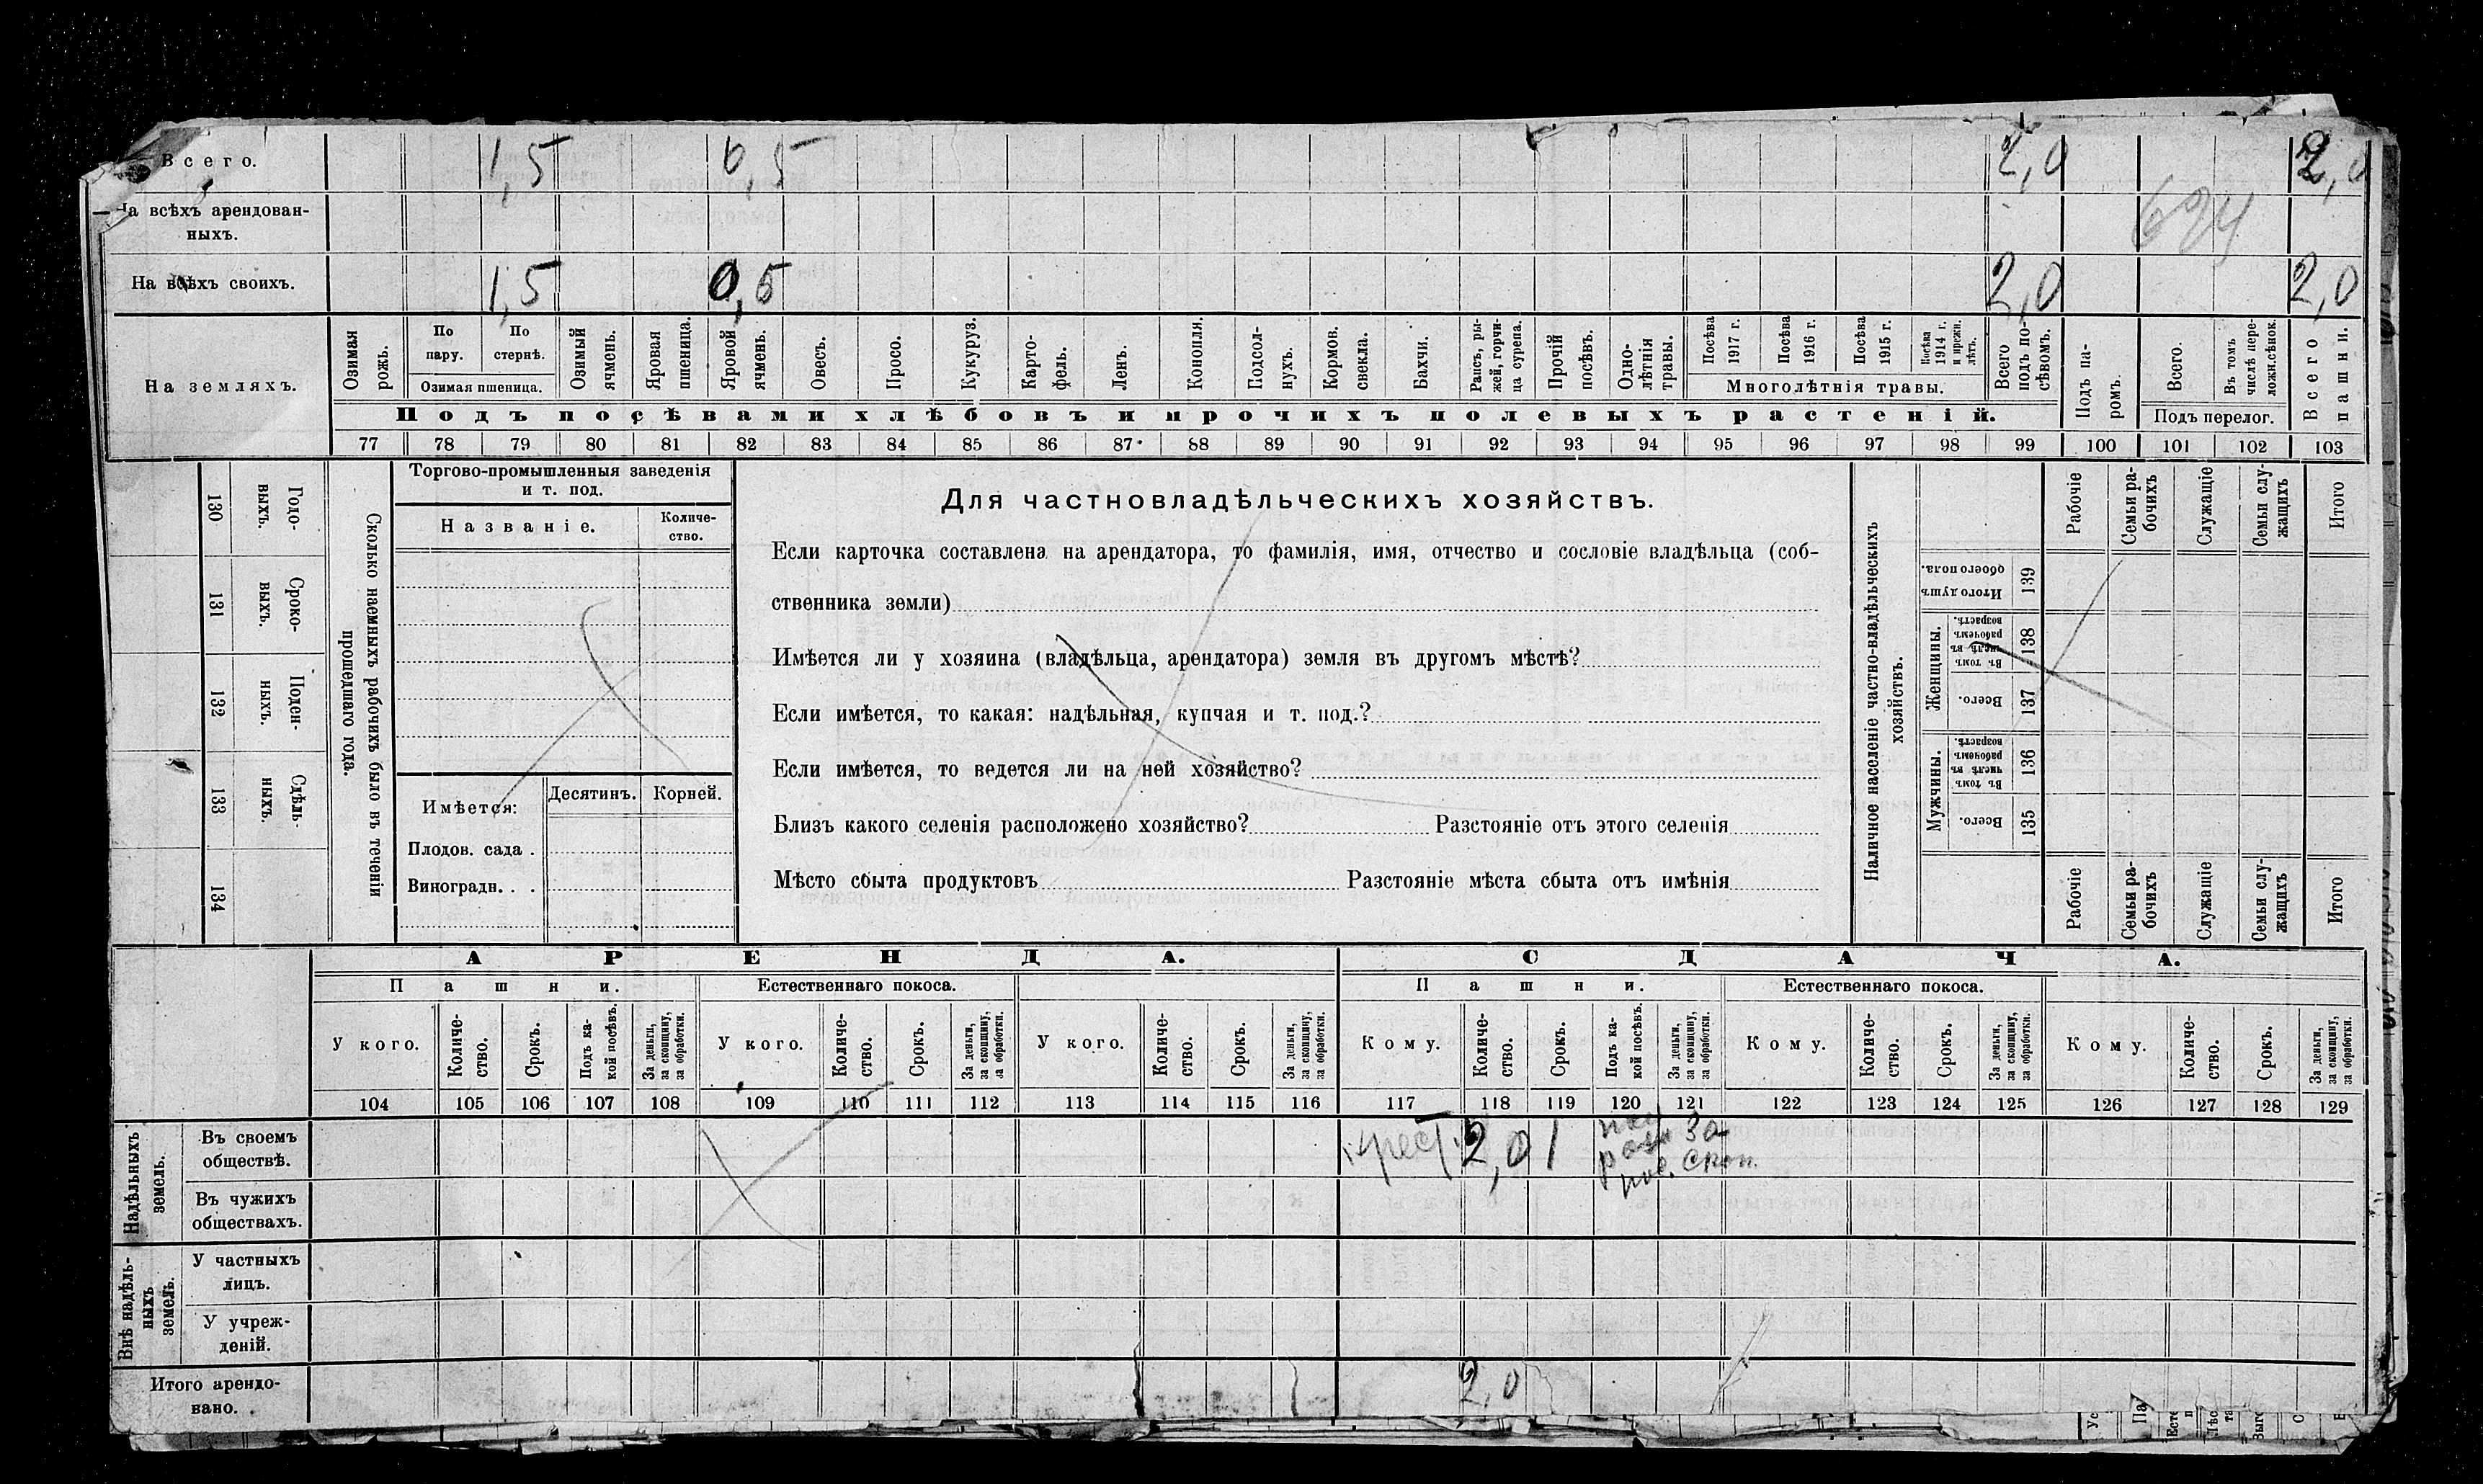 Всего. 1,5 0,5 2,0 2,0
На всѣхъ арендован-
ныхъ.
694
На всѣхъ своихъ. 1,5 0,5 2,0 2,0
На земляхъ.
Озимая рожь.
По пару.
По стернѣ.
Озимая пшеница.
Озимый ячмень.
Яровая пшеница.
Яровой ячмень.
Овесъ.
Просо.
Кукуруз.
Карто-
фель.
Ленъ.
Конопля.
Подсол-
нухъ.
Кормов.
свекла.
Бахчи.
Рапсъ, ры-
жей, горчи-
ца сурепа.
Прочій
посѣвъ.
Одно-
лѣтнія
травы.
Посѣва 1917 г.
Посѣва 1916 г.
Посѣва 1915 г.
Посѣва 1914 г. и прежн. лѣтъ.
Многолѣтнія травы.
Всего подъ по-
сѣвомъ.
Подъ па-
ромъ.
Всего.
Въ томъ числѣ пере-
ложн.сѣнок.
Подъ перелог.
Всего пашни.
Подъ посѣвами хлѣбовъ и прочихъ полевыхъ растеній.
77 78 79 80 81 82 83 84 85 86 87 88 89 90 91 92 93 94 95 96 97 98 99 100 101 102 103
130 Годо-
выхъ.
131 Сроко-
выхъ.
132 Поден-
ныхъ.
133 Сдѣль-
ныхъ.
134
Сколько наемныхъ рабочихъ было въ теченіи
прошедшаго года.
Торгово-промышленныя заведенія
и т. под.
Названіе.
Количе-
ство.
Имѣется: Десятинъ. Корней.
Плодов. сада .
Виноградн. . .
Для частновладѣльческихъ хозяйствъ.
Если карточка составлена на арендатора, то фамилія, имя, отчество и сословіе владѣльца (соб-
ственника земли)
Имѣется ли у хозяина (владѣльца, арендатора) земля въ другомъ мѣстѣ?
Если имѣется, то какая: надѣльная, купчая и т. под.?
Если имѣется, то ведется ли на ней хозяйство?
Близъ какого селенія расположено хозяйство? Разстояніе отъ этого селенія
Мѣсто сбыта продуктовъ Разстояніе мѣста сбыта отъ имѣнія
Наличное населеніе частно-владѣльческихъ
хозяйствъ.
Рабочіе
Семьи ра-
бочихъ
Служащіе
Семьи слу-
жащихъ
Итого
Итого душъ
обоего пола.
139
Женщины.
Въ томъ числѣ въ рабочемъ возрастѣ.
138
Всего.
137
Мужчины.
Въ томъ числѣ въ рабочемъ возрастѣ.
136
Всего.
135
Рабочіе
Семьи ра-
бочихъ
Служащіе
Семьи слу-
жащихъ
Итого
АРЕНДА. СДАЧА.
Пашни. Естественнаго покоса. Пашни. Естественнаго покоса.
У кого.
Количе-
ство.
Срокъ.
Подъ ка-
кой посѣвъ.
За деньги,
за скопщину,
за обработки.
У кого.
Количе-
ство.
Срокъ.
За деньги,
за скопщину,
за обработки.
У кого.
Количе-
ство.
Срокъ.
За деньги,
за скопщину,
за обработки.
Кому.
Количе-
ство.
Срокъ.
Подъ ка-
кой посѣвъ.
За деньги,
за скопщину,
за обработки.
Кому.
Количе-
ство.
Срокъ.
За деньги,
за скопщину,
за обработки.
Кому.
Количе-
ство.
Срокъ.
За деньги,
за скопщину,
за обработки.
104 105 106 107 108 109 110 111 112 113 114 115 116 117 118 119 120 121 122 123 124 125 126 127 128 129
Надѣльныхъ
земель.
Въ своемъ
обществѣ.
крест. 2,0 1 За скоп.
Въ чужихъ
обществахъ.
Внѣ надѣль-
ныхъ
земель.
У частныхъ
лицъ.
У учреж-
деній.
Итого арендо-
вано. 2,0